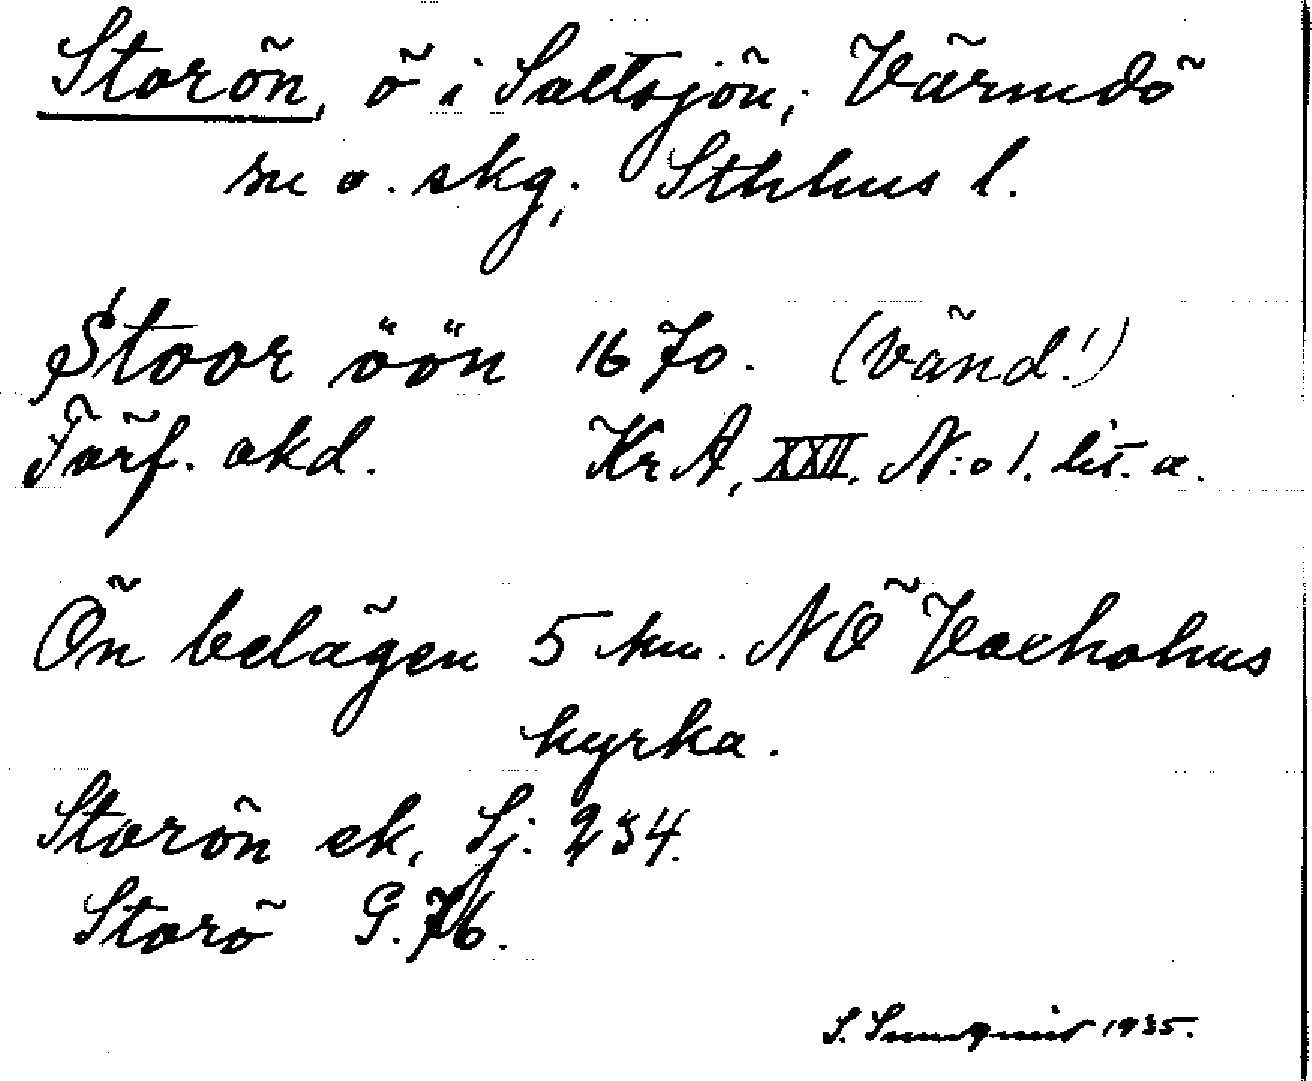 Storön, ö i Saltsjön, Värmdö
sn o. skg, Sthlms l.
Stoor öön 1670. (vänd!)
Förf. okd. KrA, XXII. N:o 1. lit. a.
Ön belägen 5 km. NÖ Vaxholms
kyrka.
Storön ek, Sj. 234.
Storö G. 76.
S. 1935.